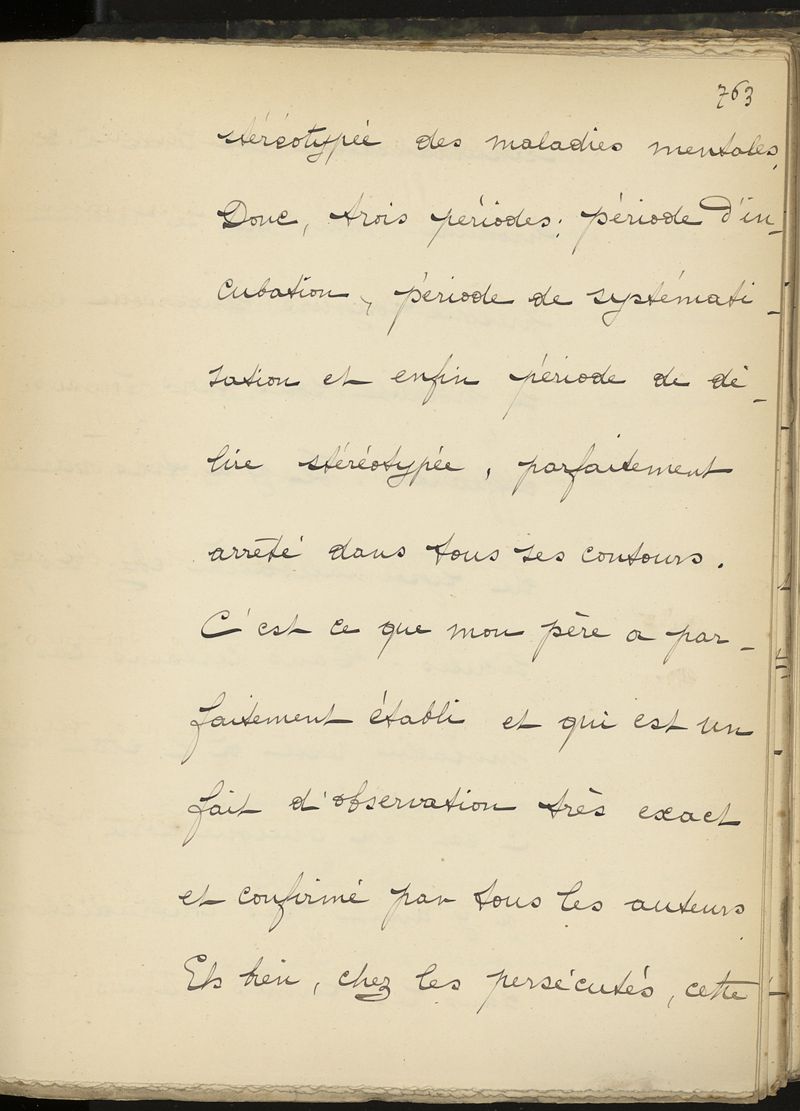 763
stéréotypée des maladies mentales.
Donc, trois périodes: période d'in-
cubation, période de systémati-
sation et enfin période de dé-
lire stéréotypée, parfaitement
arrêté dans tous ses contours.
C'est ce que mon père a par-
faitement établi et qui est un
fait d'observation très exact
et confirmé par tous les auteurs.
Eh bien, chez les persécutés, cette